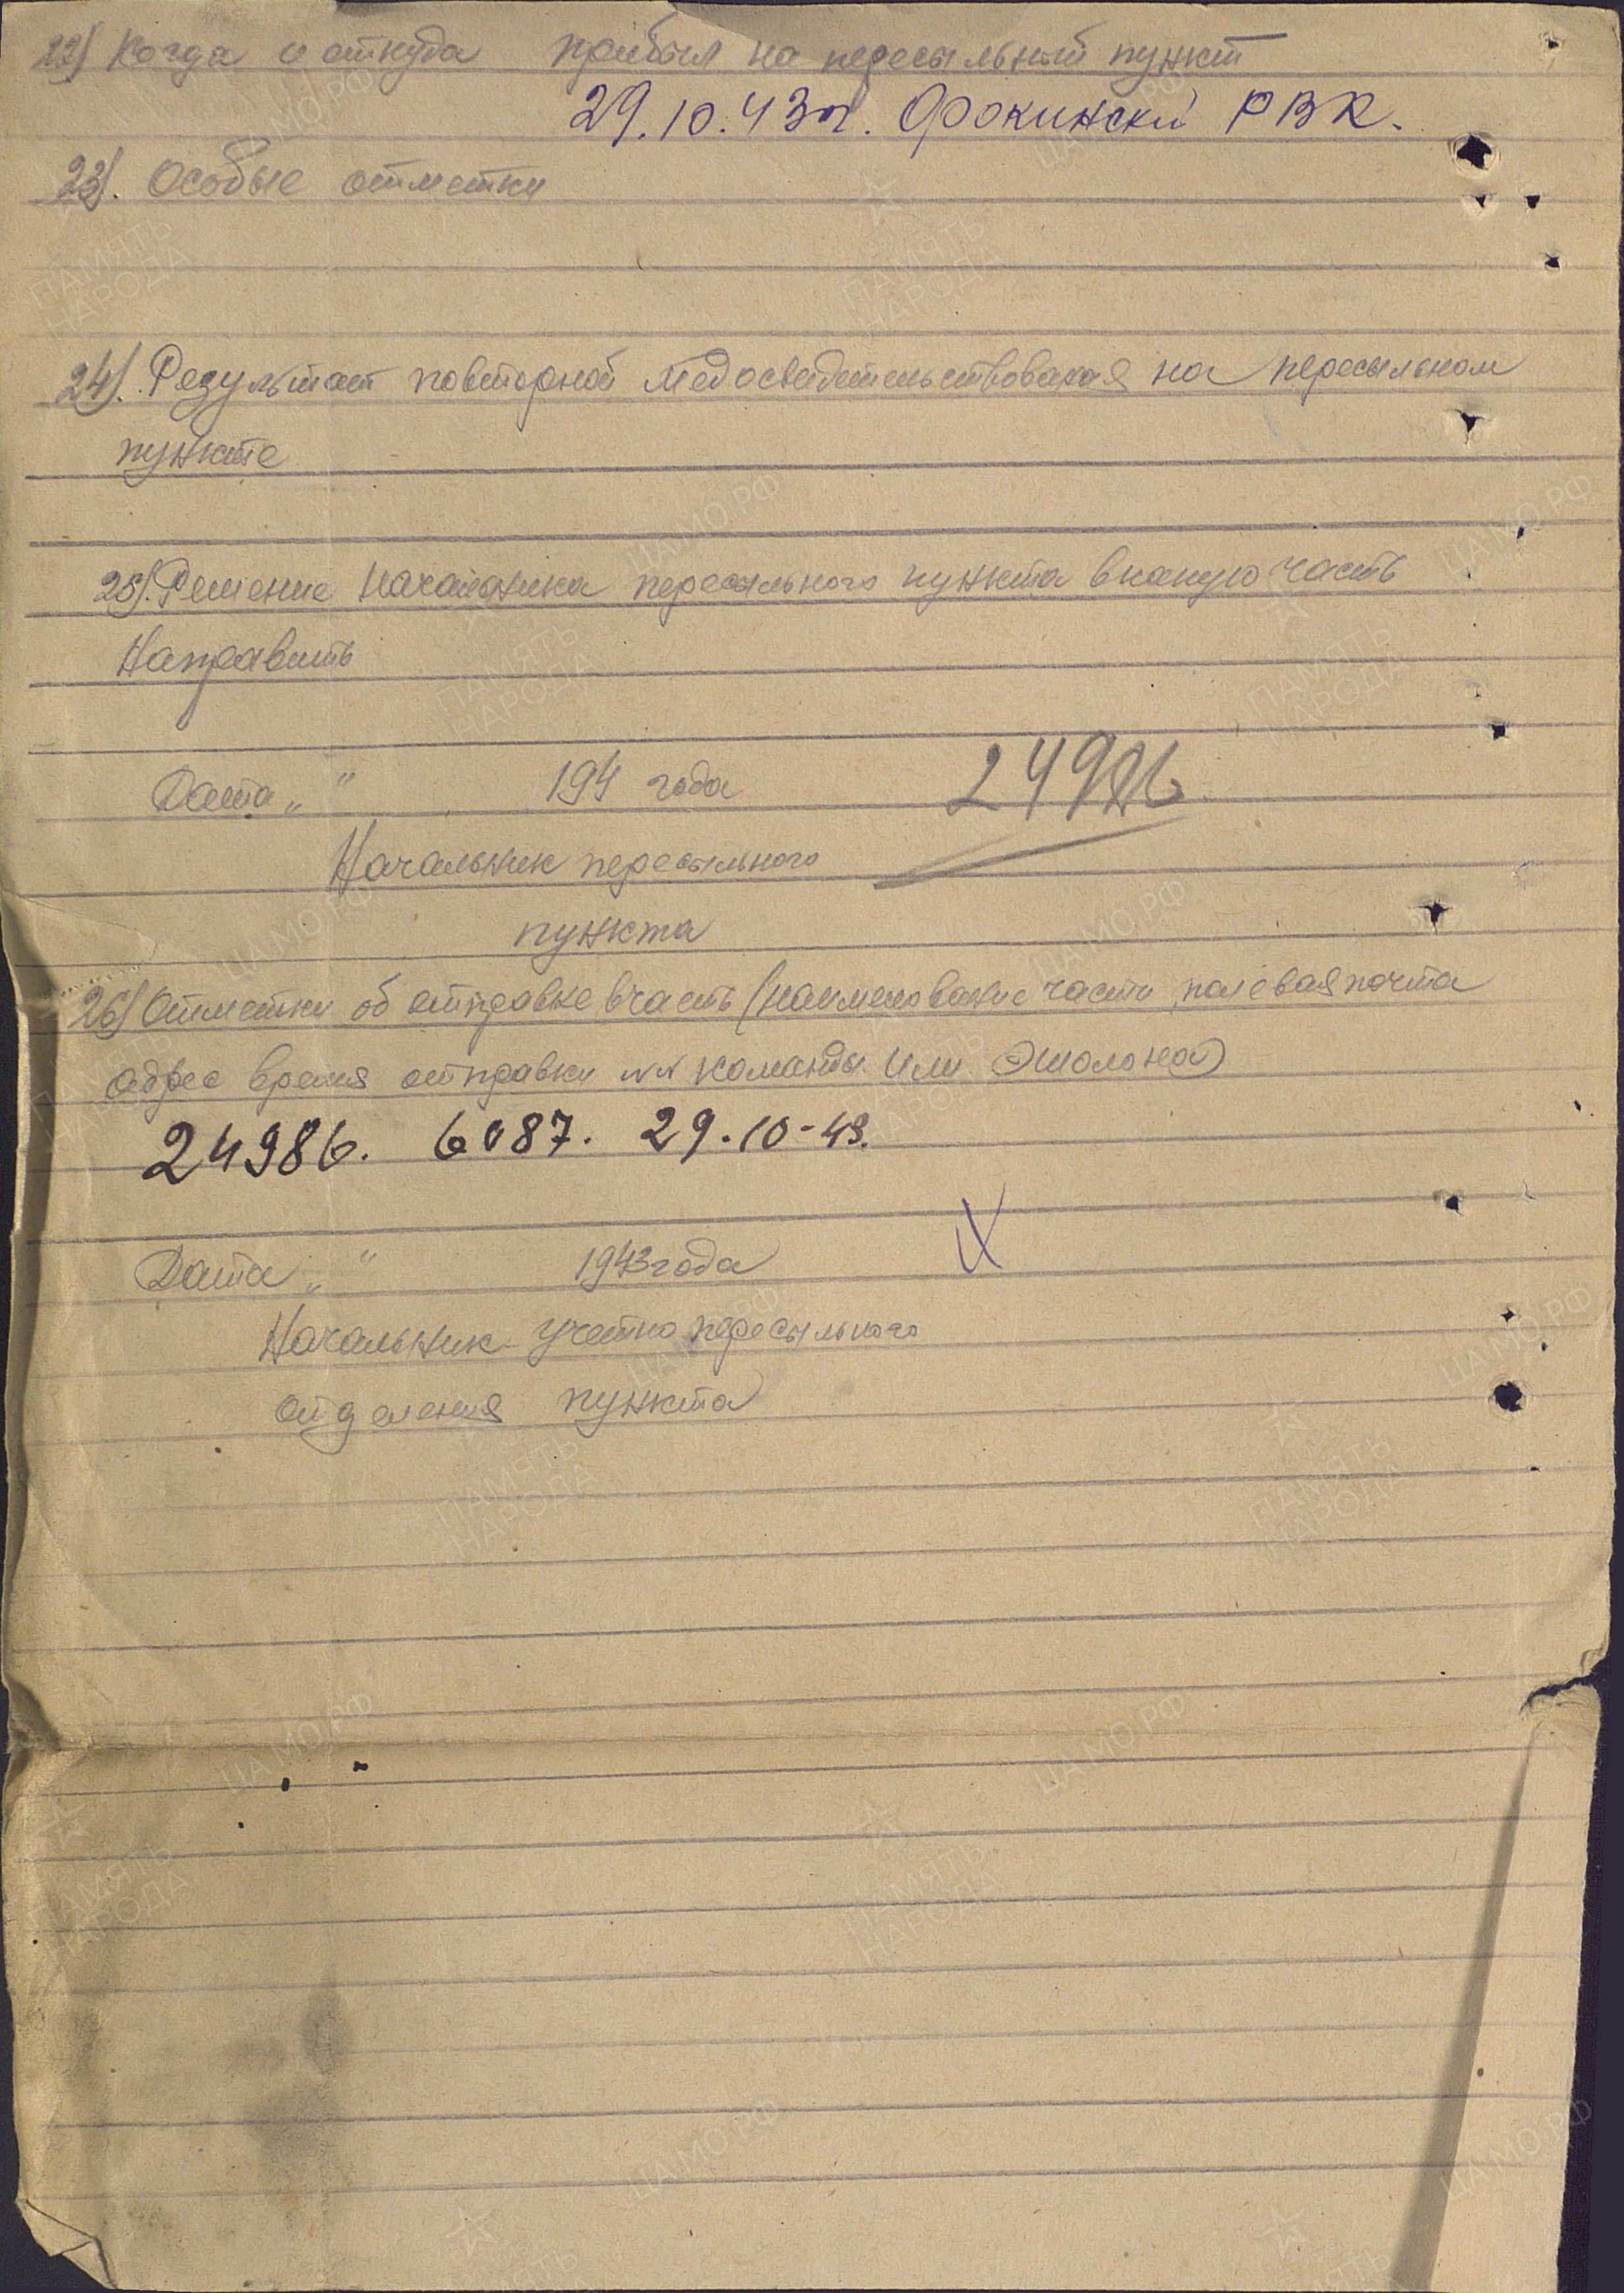 22) Когда и откуда прибыл на пересыльный пункт
29.10.43 г. Фокинский РВК.
23). Особые отметки
24). Результат повторной медосвидетельствования на пересыльном
пункте
25). Решение Начальника пересыльного пункта в какую часть
Направить
Дата „ " 194 года 24986
Начальник пересыльного
пункта
26) Отметки об отправке в часть (наименование части, полевая почта
адрес время отправки №№ команды или эшолона)
24986. 6087. 29.10-43.
Дата „ " 1943 года
Начальник учетно пересыльного
отделения пункта